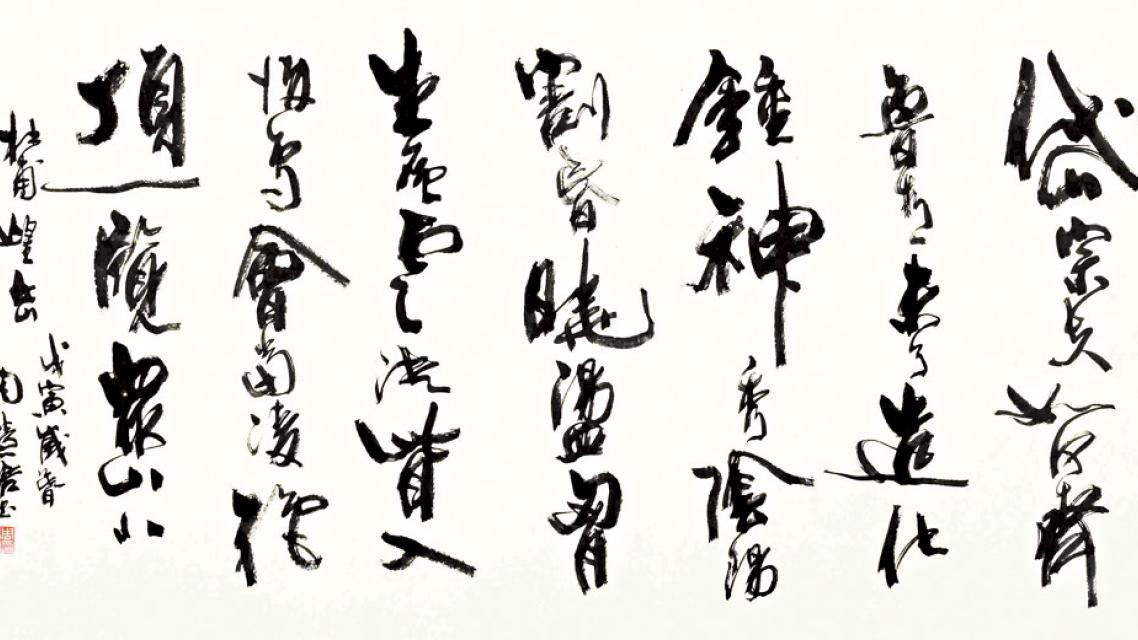 岱宗夫如何齊
魯青未了造化
鍾神秀陰陽
割昏曉盪胷
生層雲決眥入
歸鳥會當凌絕
頂一覽衆山小
杜甫望岳
戊寅歲春
南